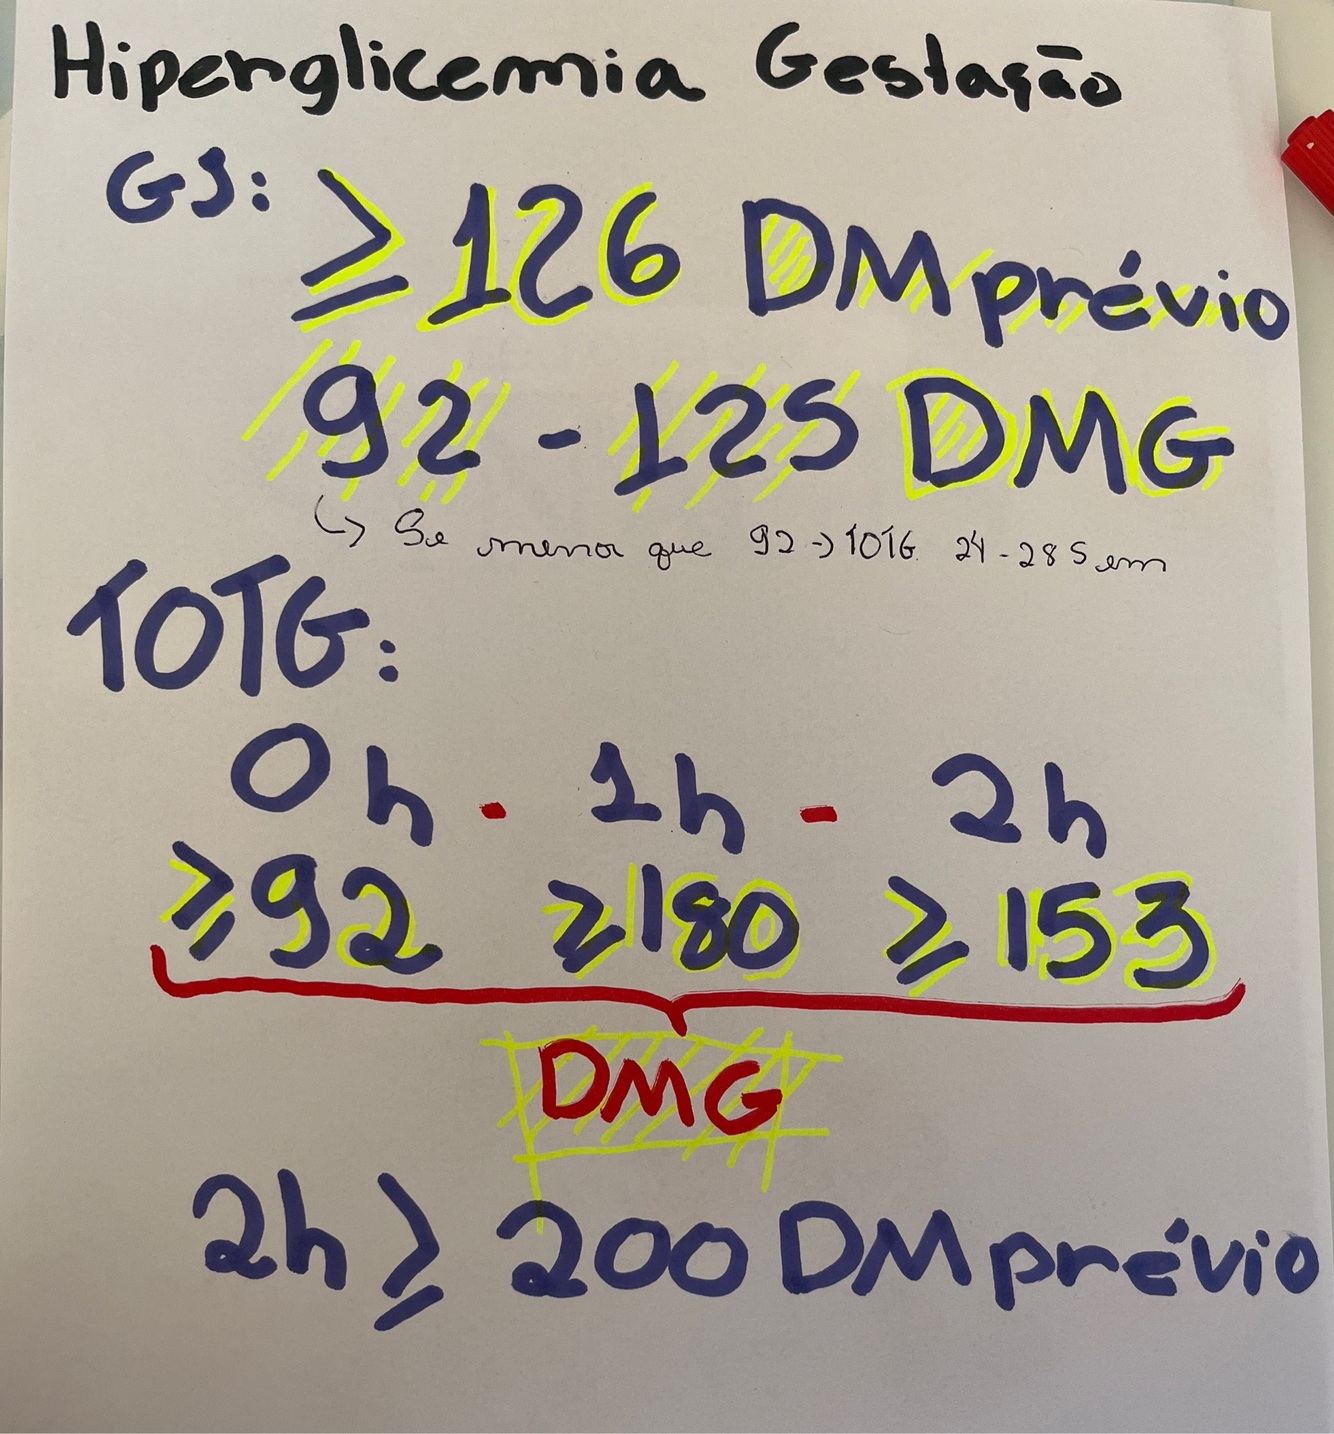 Hiperglicemia Gestação
GJ: ≥126 DM prévio
92 - 125 DMG
↳ Se menor que 92 → TOTG 24 - 28 Sem
TOTG:
0h - 1h - 2h
≥92 ≥180 ≥153
DMG
2h ≥ 200 DM prévio